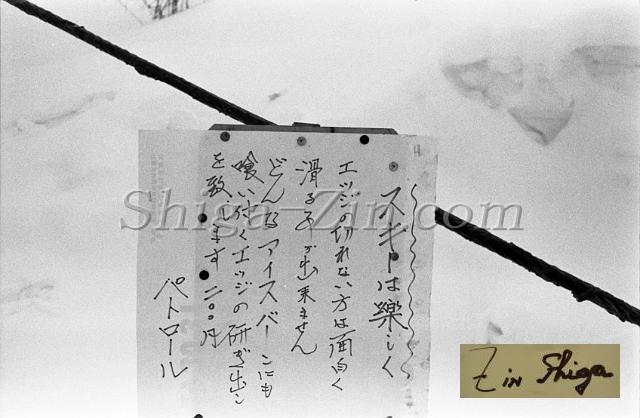 スキーは樂しく
エッジの切れない方は面白く
滑る事が出来ません
どんなアイスバーンにも
喰い付くエッジの研ぎ出し
を致します 二〇〇円
パトロール
Shiga-Zin.com
Z in Shiga